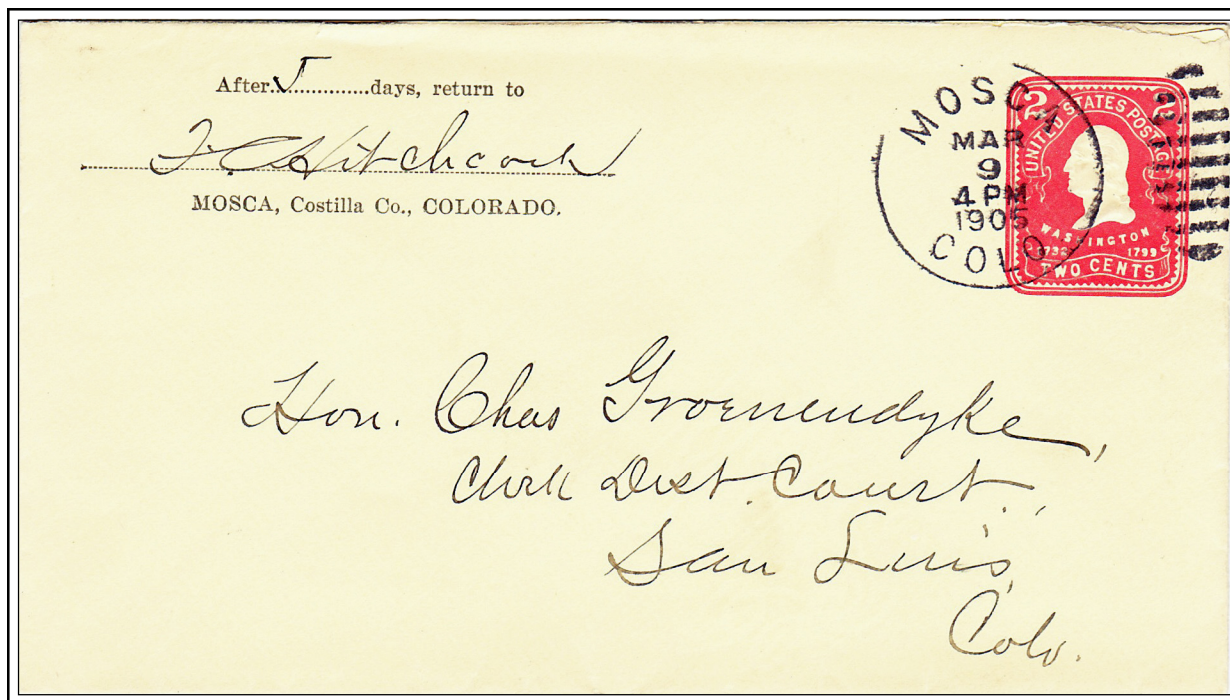 After 5 days, return to
F. C. Hitchcock
MOSCA, Costilla Co., COLORADO.
MOSCA
MAR
9
4 PM
1905
COLO
2 2
UNITED STATES POSTAGE
WASHINGTON
1732 1799
TWO CENTS
Hon. Chas Groenendyke,
Clerk Dist. Court,
San Luis,
Colo.